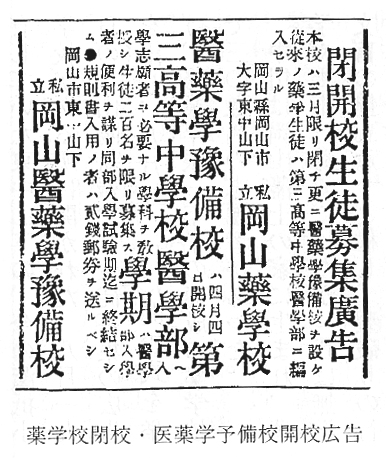 閉開校生徒募集廣告
本校ハ三月限リ閉チ更ニ醫藥學豫備校ヲ設ケ
從來ノ藥學生徒ハ第三高等中學校醫學部ニ編
入セラル
岡山縣岡山市
大字東中山下
私立 岡山藥學校
醫藥學豫備校ハ四月四日開校シ第
三高等中學校醫學部ヘ入
學志願者ニ必要ナル學科ヲ教
授シ生徒二百名ヲ限リ募集ス學期ハ醫學部入學
者ノ便利ヲ謀リ同部入學試驗期迄ニ終結セシ
ム●規則書入用ノ者ハ貳錢郵券ヲ送ルベシ
岡山市東中山下
私立 岡山醫藥學豫備校
薬学校閉校・医薬学予備校開校広告